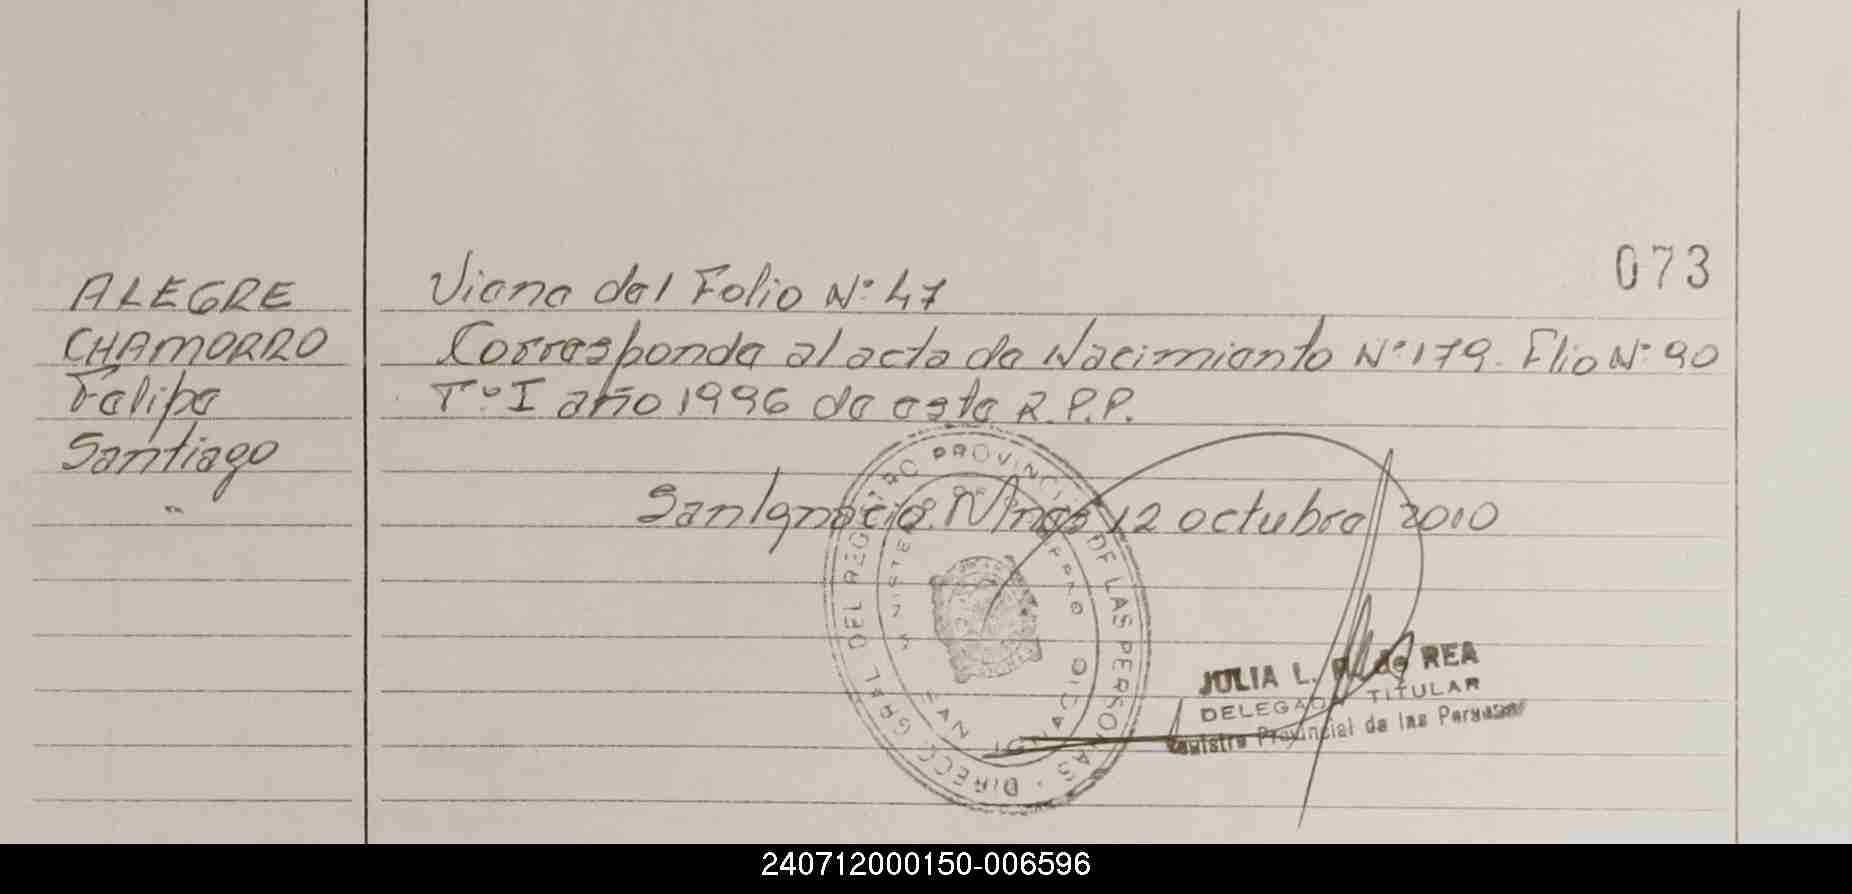 073
ALEGRE
CHAMORRO
Felipe
Santiago
Viene del Folio Nº 47
Corresponde al acta de Nacimiento Nº 179. Flio Nº 90
Tº I año 1996 de este R.P.P.
San Ignacio. Mnes 12 octubre 2010
DIRECC. GRAL DEL REGISTRO PROVINCIAL DE LAS PERSONAS
MINISTERIO DE GOBIERNO
JULIA L. R. de REA
DELEGADA TITULAR
Registro Provincial de las Personas
240712000150-006596